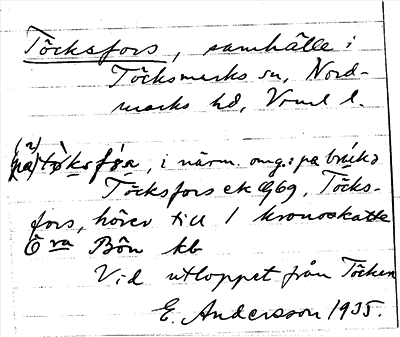 Töcksfors, samhälle i
Töcksmarks sn, Nord-
marks hd, Vrml l.
(på) tò̀ksfǫ́ṣa, i närm. omg.: pa brúkə
Töcksfors ek Gg69, Töcks-
fors, hörer till 1 kronoskatte
Ö ra Bön kb
Vid utloppet från Töcken
E. Andersson 1935.